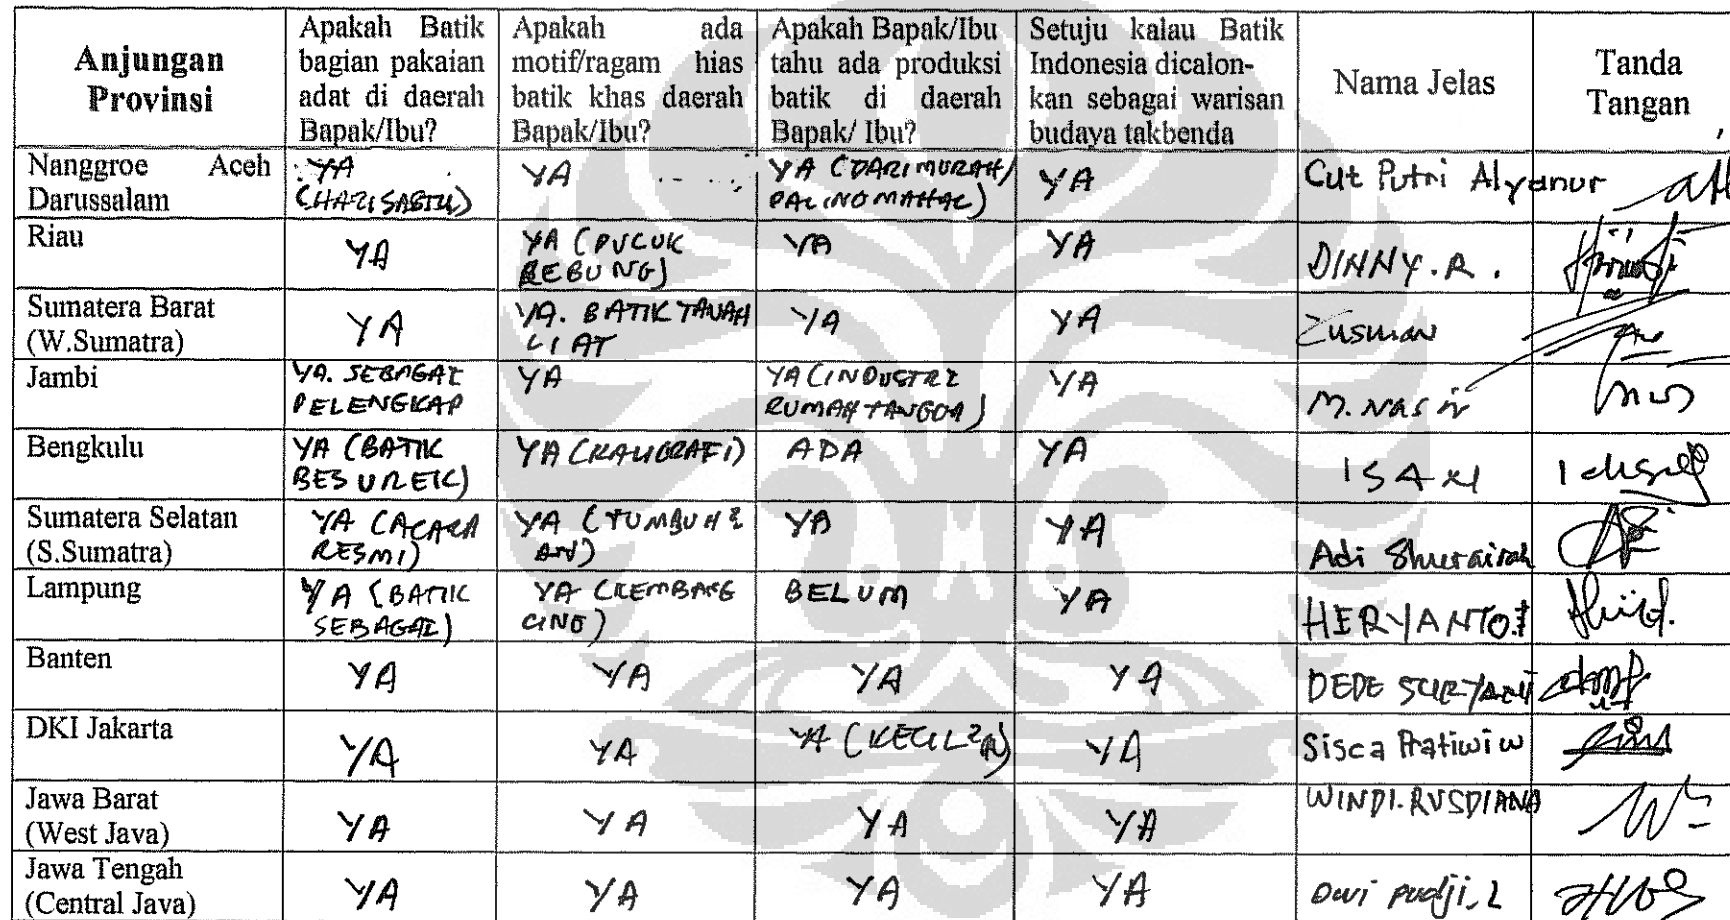 Anjungan Provinsi | Apakah Batik bagian pakaian adat di daerah Bapak/Ibu? | Apakah ada motif/ragam hias batik khas daerah Bapak/Ibu? | Apakah Bapak/Ibu tahu ada produksi batik di daerah Bapak/ Ibu? | Setuju kalau Batik Indonesia dicalon-kan sebagai warisan budaya takbenda | Nama Jelas | Tanda Tangan
Nanggroe Aceh Darussalam | YA | YA | YA (DARI MURAH/ PALING MAHAL) | YA | Cut Putri Alyanur
Riau | YA | YA (PUCUK REBUNG) | YA | YA | DINNY.R.
Sumatera Barat (W.Sumatra) | YA | YA. BATIK TANAH LIAT | YA | YA | Zusman
Jambi | YA. SEBAGAI PELENGKAP | YA | YA (INDUSTRI RUMAH TANGGA) | YA | M. Nasir
Bengkulu | YA (BATIK BESUREK) | YA (KALIGRAFI) | ADA | YA
Sumatera Selatan (S.Sumatra) | YA (ACARA RESMI) | YA (TUMBUH2 AN) | YA | YA | Adi
Lampung | YA (BATIK SEBAGAI) | YA (KEMBANG CINO) | BELUM | YA | HERYANTO
Banten | YA | YA | YA | YA | DEDE SURYANI
DKI Jakarta | YA | YA | YA (KECIL2 AN) | YA | Sisca Pratiwi W
Jawa Barat (West Java) | YA | YA | YA | YA | WINDI.RUSDIANA
Jawa Tengah (Central Java) | YA | YA | YA | YA | Dwi Pudji. L